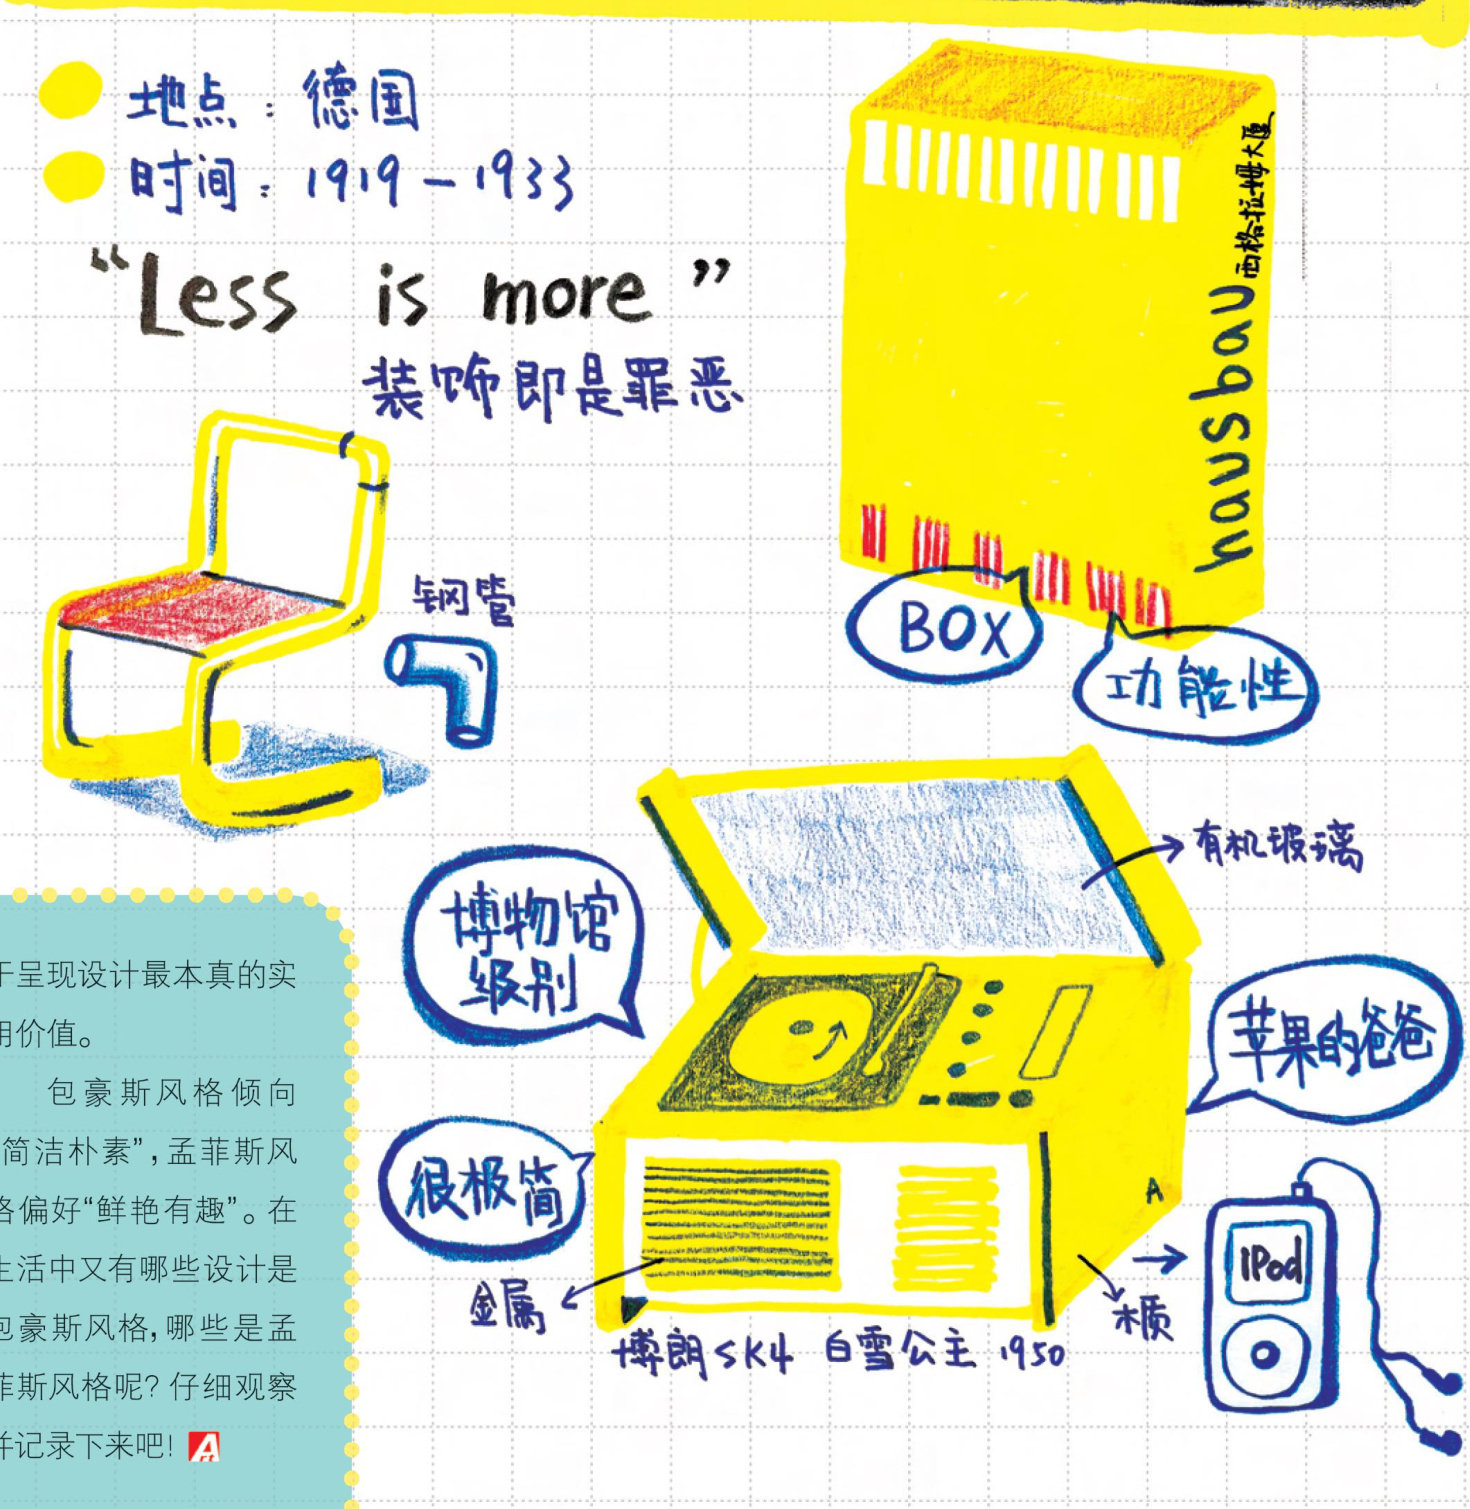 地点：德国
时间：1919－1933
“Less is more”
装饰即是罪恶
西格拉姆大厦
hausbau
钢管
BOX
功能性
有机玻璃
博物馆
级别
苹果的爸爸
很极简
金属
木质
A
IPod
博朗SK4 白雪公主 1950
于呈现设计最本真的实
用价值。
包豪斯风格倾向
简洁朴素”,孟菲斯风
格偏好“鲜艳有趣”。在
生活中又有哪些设计是
包豪斯风格,哪些是孟
菲斯风格呢? 仔细观察
并记录下来吧!